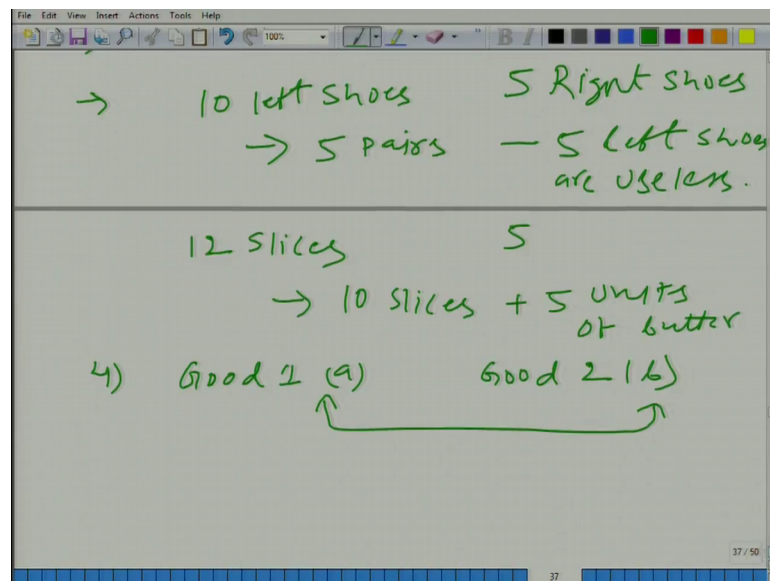 File Edit View Insert Actions Tools Help
100%
B I
→ 10 left shoes 5 Right shoes
→ 5 pairs — 5 left shoes
are useless.
12 slices 5
→ 10 slices + 5 units
of butter
4) Good 1 (a) Good 2 (b)
37 / 50
37